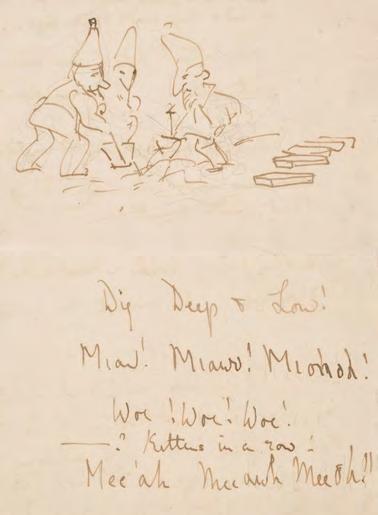 Dig Deep & Low!
Miaw! Miaww! Mio'ooh!
Woe! Woe! Woe!
—? Kittens in a row!
Mee'ah Meeauh Meeoh!!